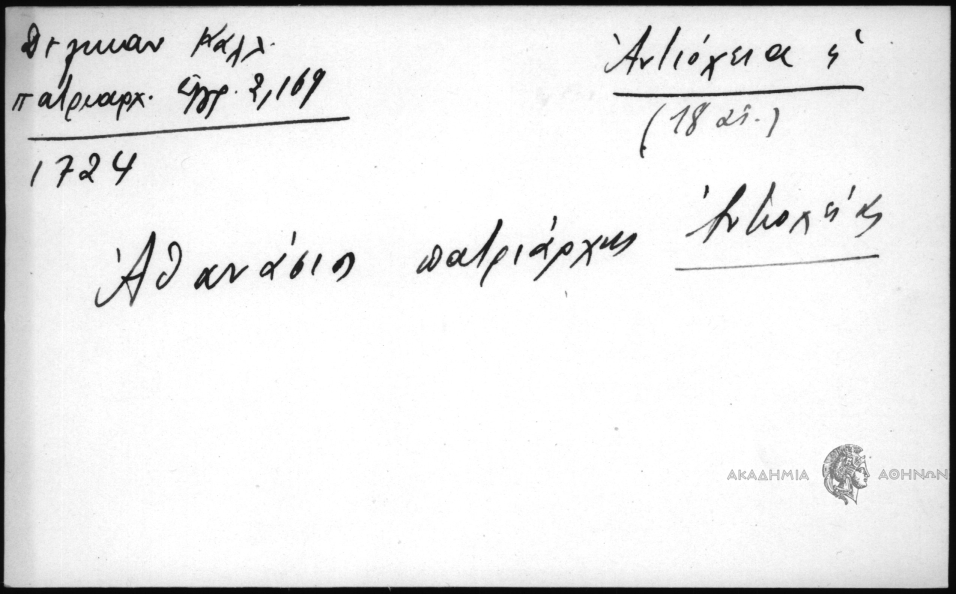 Δεληκαν Καλλ.
πατριαρχ. ἔγγρ. 2, 169
1724
Ἀντιόχεια ἡ
(18 αἰ.)
Ἀθανάσιος πατριάρχης Ἀντιοχείας
ΑΚΑΔΗΜΙΑ ΑΘΗΝΩΝ